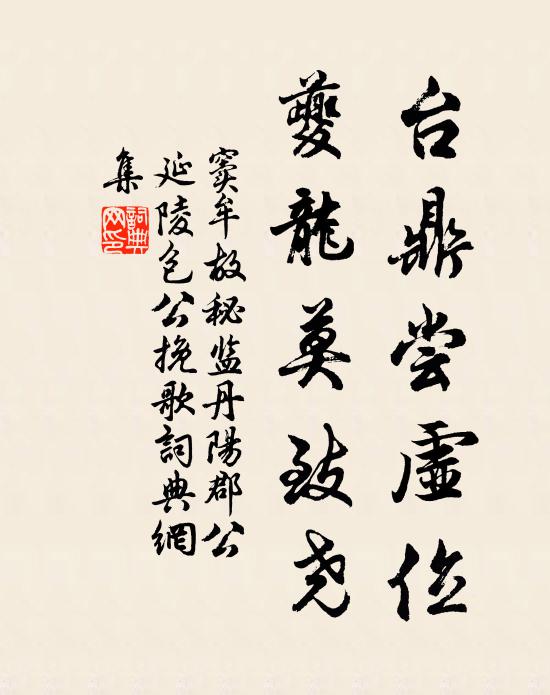 台鼎尝虚位
夔龍莫致尧
窦牟故秘监丹陽郡公
延陵包公挽歌詞典網
集
詞典网印